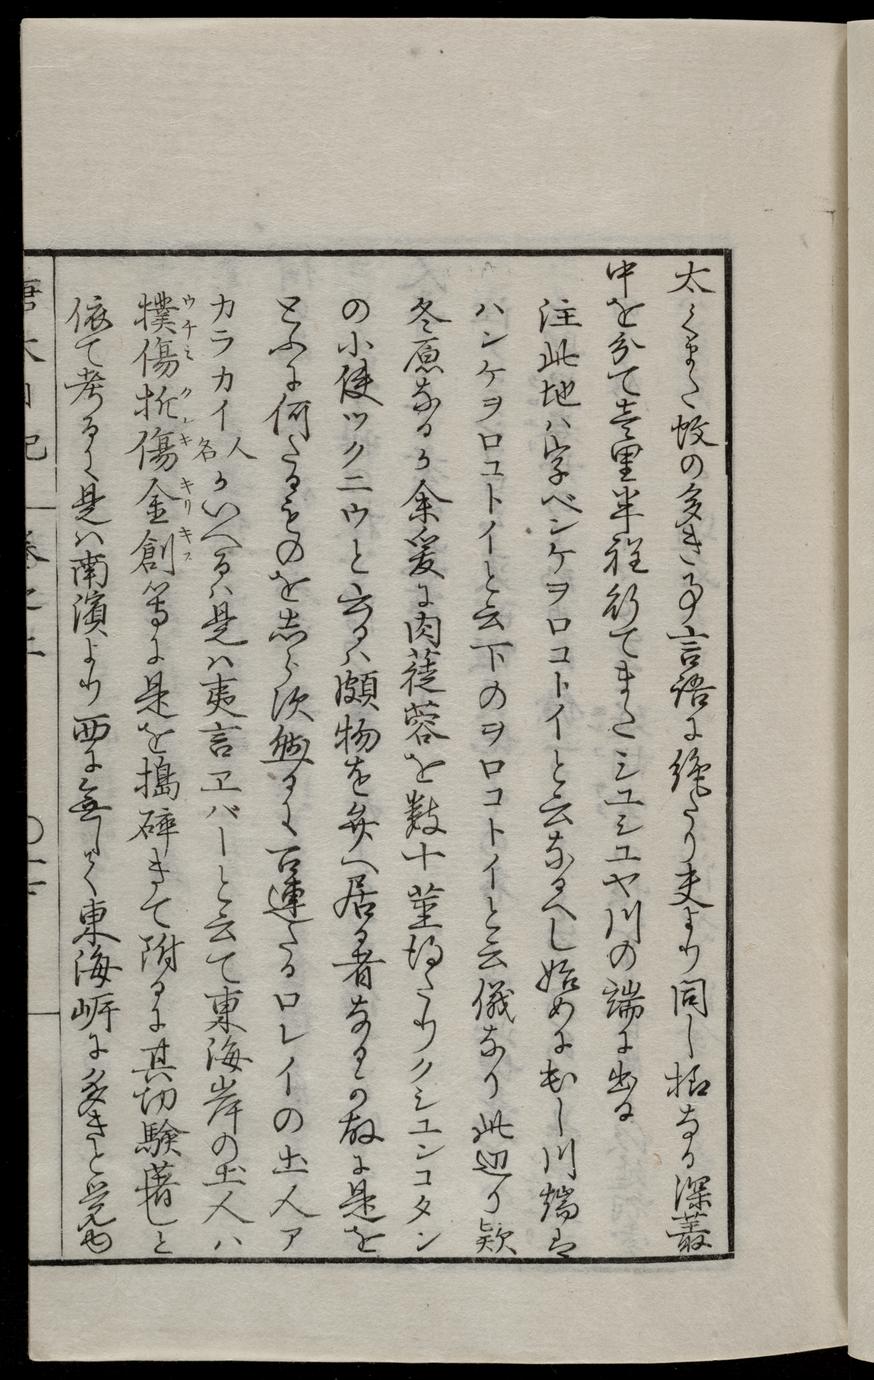 太くまた蚊の多き事言語に絶たり夫より同し様なる深叢
中を分て壱里半程行てまたシユシユヤ川の端に出る
注此地ハ字ペンケヲロコトイと云なるへし始めに出し川端は
ハンケヲロコトイと云下のヲロコトイと云儀なり此辺り欵
冬原なるか余爰に肉蓯蓉を数十茎得たりクシユンコタン
の小使ツクニウと云るハ頗物を弁へ居る者なるか故に是を
とふに何たるものを志らす然るに召連たるロレイの土人ア
カラカイ人名かいへるハ是は夷言ヱバーと云て東海岸の土人ハ
撲傷折傷金創等に是を搗砕きて附るに其切験著しと
ウチミ クシキ キリキス
依て考るに是は南濱より西に無しく東海岸に多きと覚ゆ
唐太日記 巻之上 〇十七